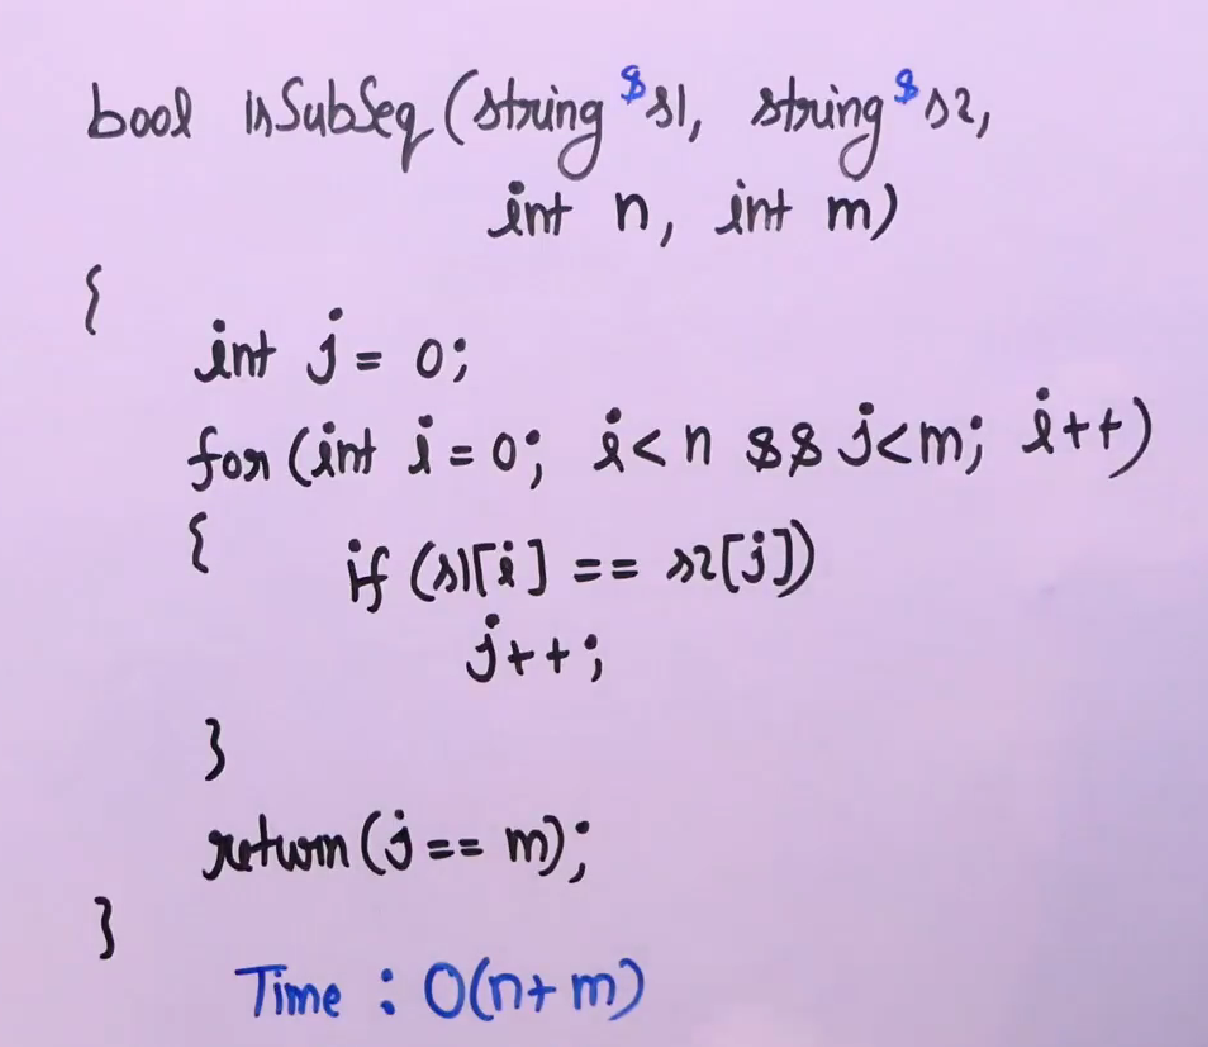 bool isSubSeq(string &s1, string &s2,
int n, int m)
{
int j = 0;
for (int i = 0; i < n && j < m; i++)
{ if (s1[i] == s2[j])
j++;
}
return (j == m);
}
Time : O(n+m)